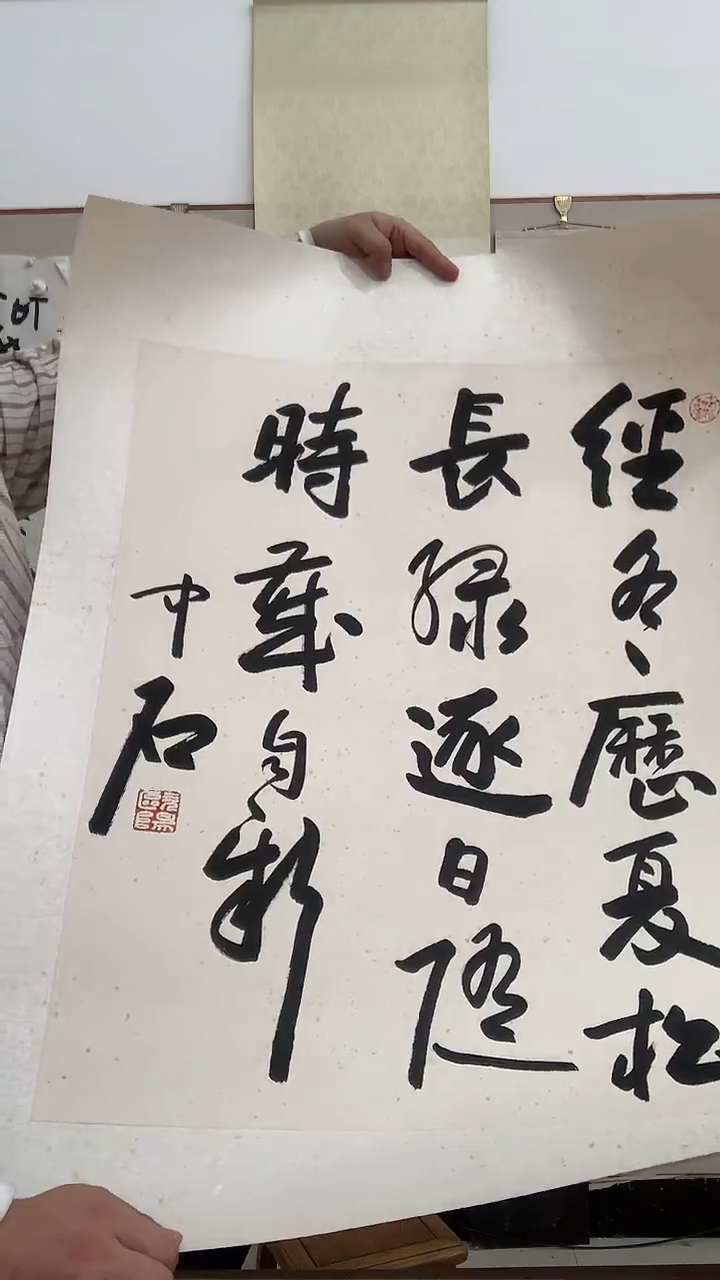 經冬歷夏松
長緑逐日隨
時葉自新
中石